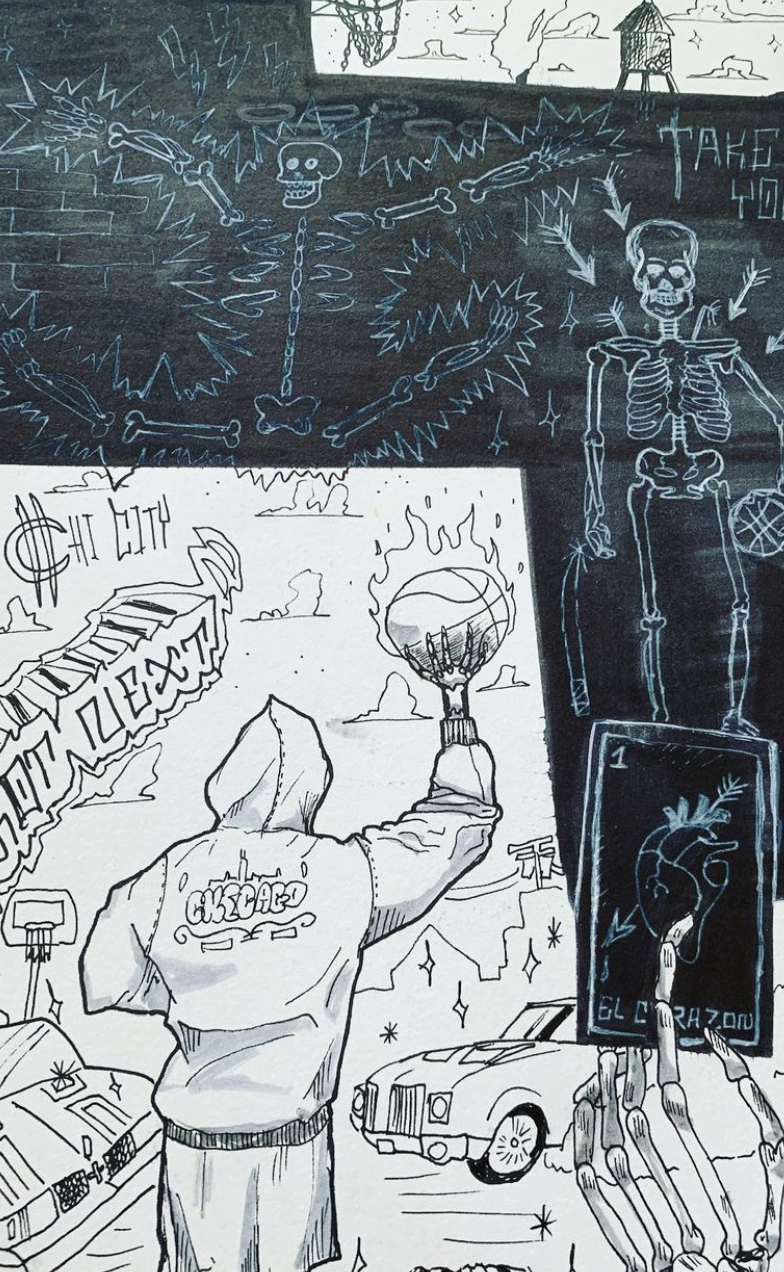 TAKE
YO
CHI CITY
GOT NEXT
CHICAGO
1
EL CORAZON